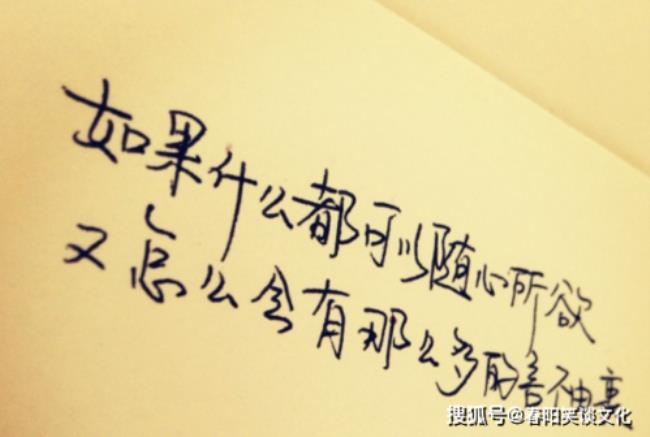 如果什么都可以随心所欲
又怎么会有那么多的善不由衷
搜狐号@春阳笑谈文化